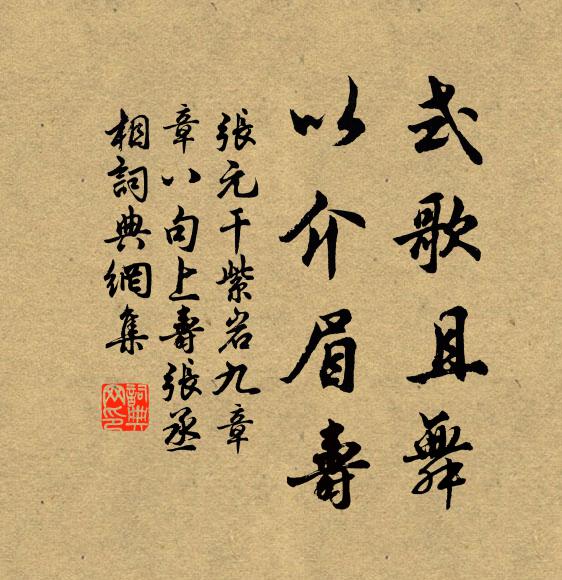 式歌且舞
以介眉壽
張元干紫岩九章
章八句上壽張丞
相詞典網集
詞典
网印